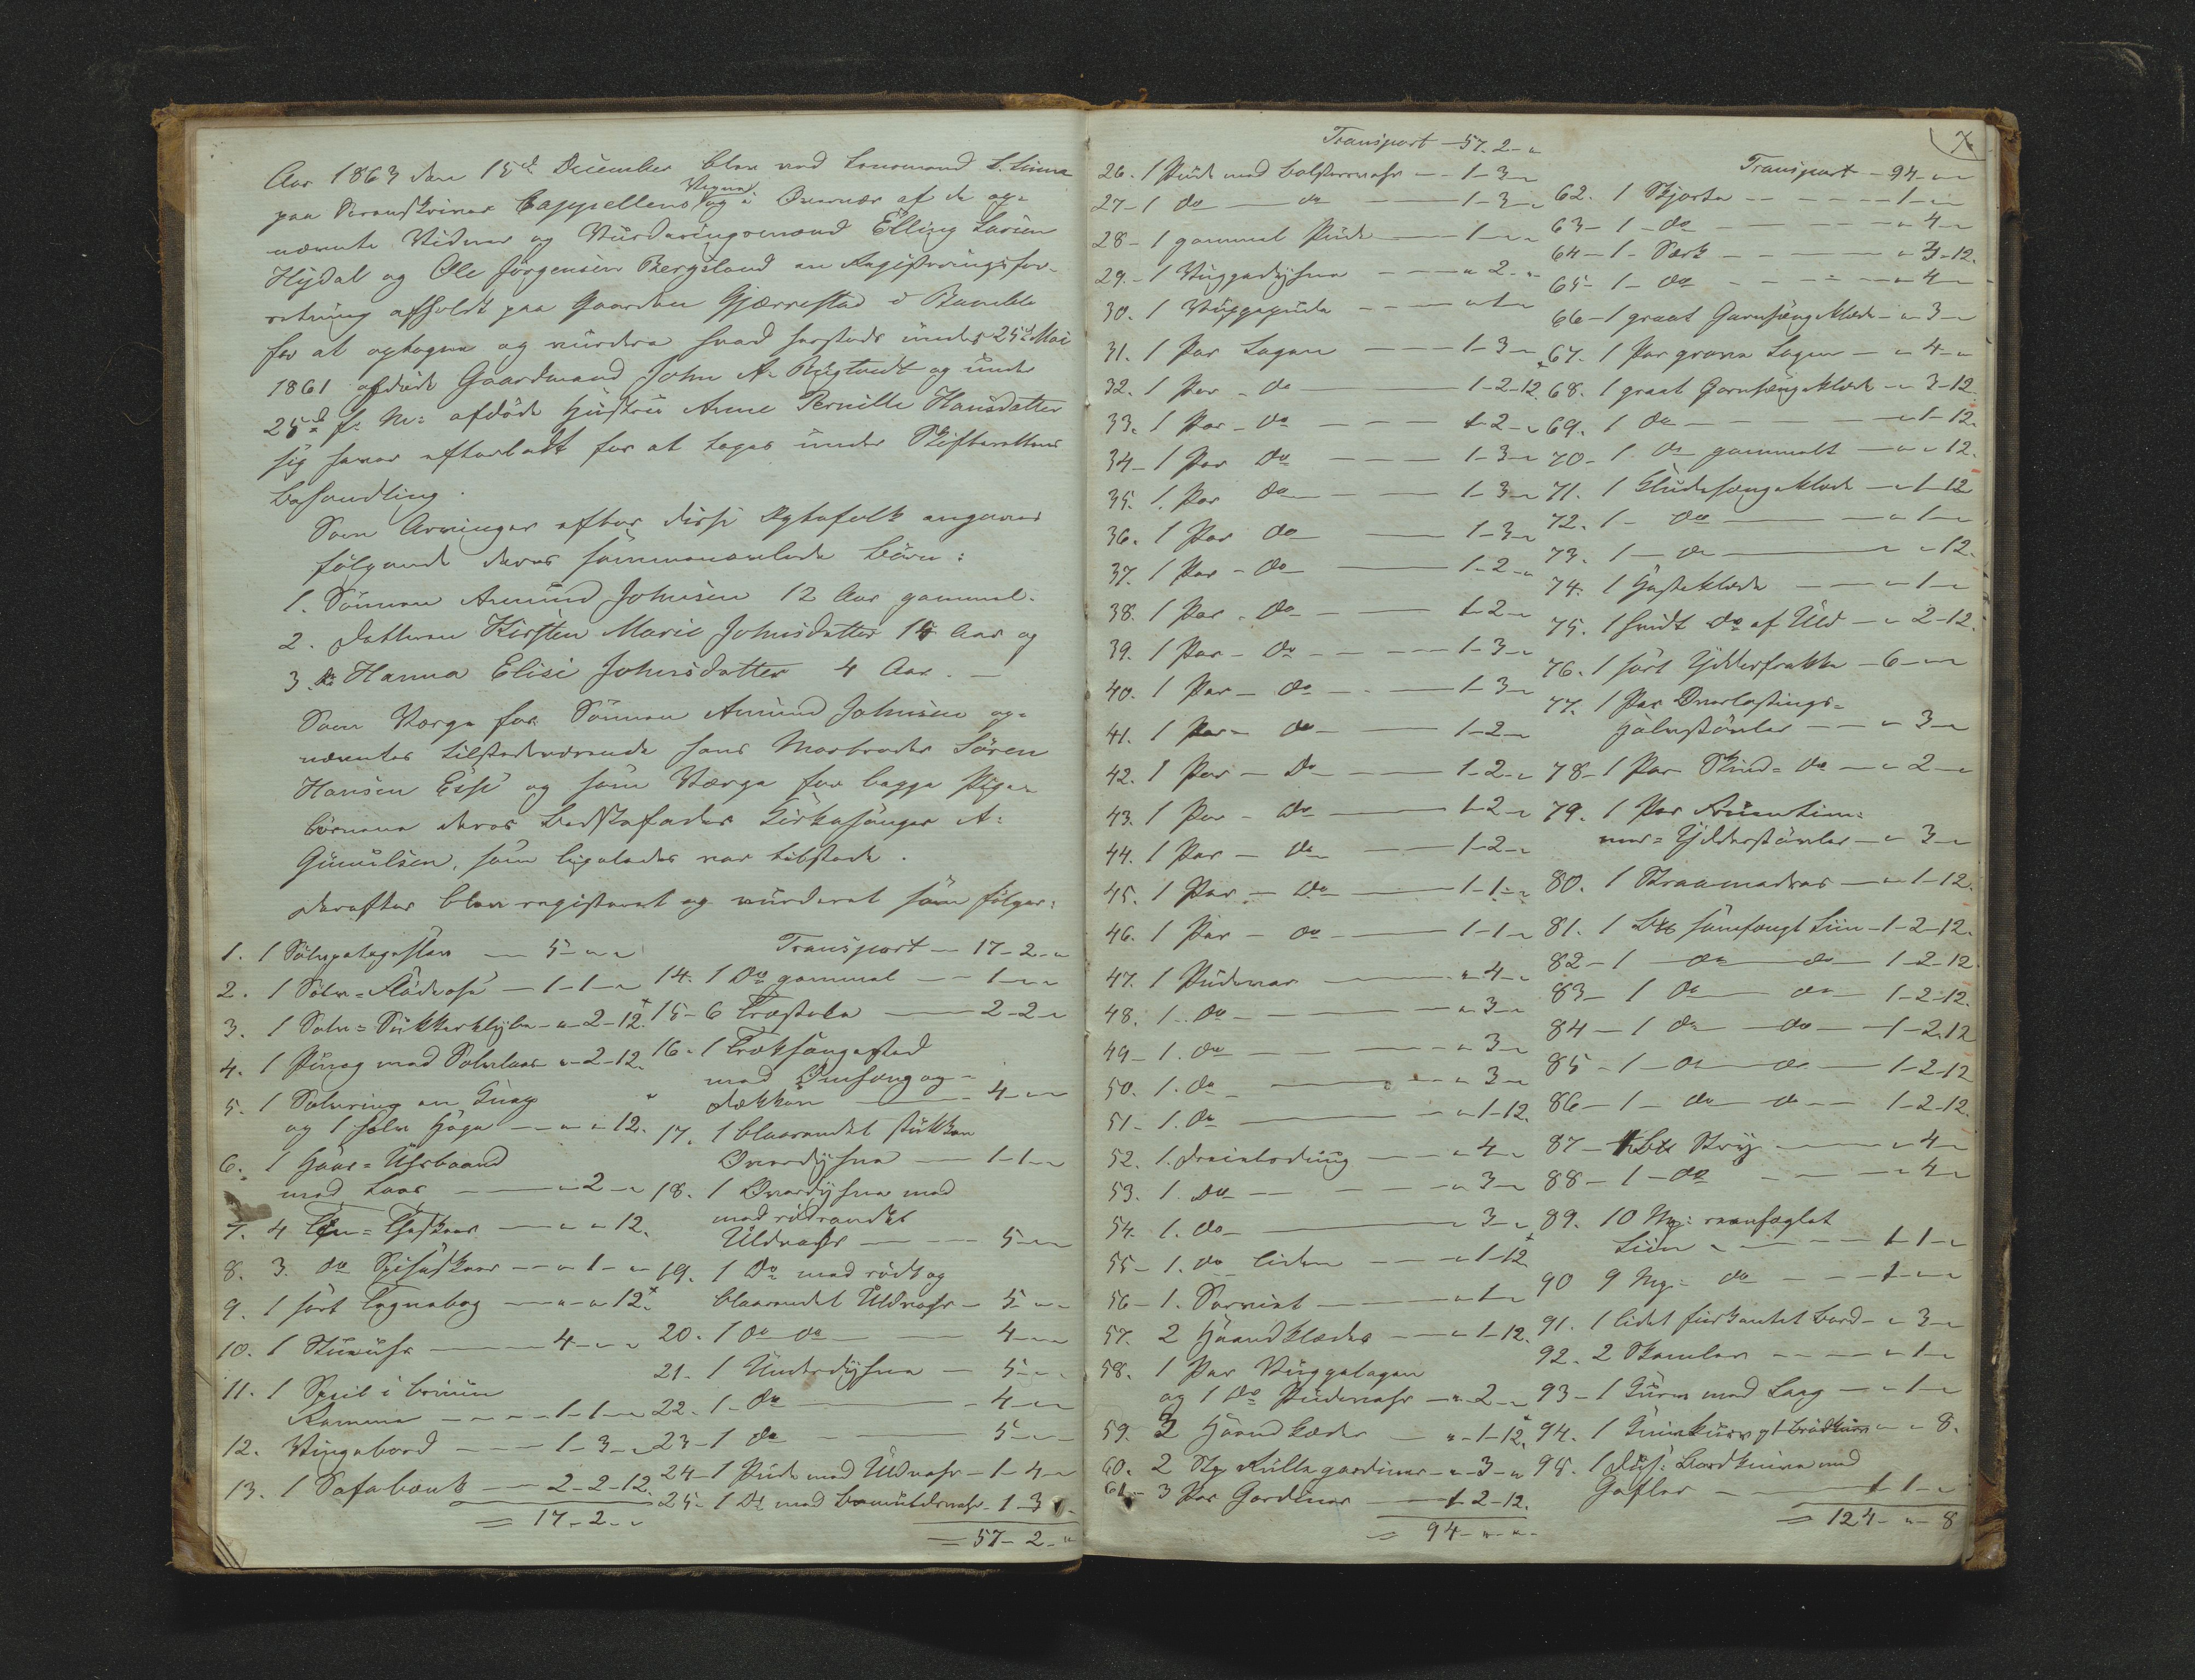 Aar 1863 den 15d December blev ved Lensmand L. Linna
paa Sorenskriver Cappellens Vegne og i Overvær af de op-
nævnte Vidner og Vurderingsmænd Elling Larsen
Hydal og Ole Jörgensen Bergsland en Registreringsfor-
retning afholdt paa Gaarden Gjærrestad i Bamble
for at optegne og vurdere hvad hersteds under 25d Mai
1861 afdøde Gaardmand John A. Rugtvedt og under
25d f. M: afdøde Hustru Anne Pernille Hansdatter
sig haver efterladt for at tages under Skifterettens
Behandling.
Som Arvinger efter disse Ægtefolk angaves
følgende deres sammenavlede Börn:
1. Sönnen Amund Johnsen 12 Aar gammel.
2. Datteren Kirsten Marie Johnsdatter 14 Aar og
3. do Hanna Elise Johnsdatter 4 Aar. —
Som Værge for Sönnen Amund Johnsen op-
nævntes tilstedeværende hans Morbroder Sören
Hansen Esse og som Værge for begge Pige-
börnene deres Bedstefader Kirkesanger A.
Gunulsen, som ligeledes var tilstede.
Derefter blev registreret og vurderet som følger:
1. 1 Sölvpotageskee — 5 - " - "
2. 1 Sölv-Flödeose — 1 - 1 - "
3. 1 Sölv-Sukkerklybe - " - 2 - 12.
4. 1 Pung med Sølvlaas " - 2 - 12.
5. 1 Sølvring en Knap
og 1 sølv Hage — " - " - 12.
6. 1 Haar-Uhrbaand
med Laas — " - 2 - "
7. 4 Tin-Theskeer — " - " 12.
8. 3. do Spiseskeer — " - 1 - "
9. 1 sort Tegnebog — " - " 12.
10. 1 Stueuhr — 4 - " - "
11. 1 Speil i bruun
Ramme — 1 - 1 - "
12. Vingebord — 1 - 3 - "
13. 1 Sofabænk — 2 - 2 - 12.
= 17 - 2 - "
Transport — 17 - 2 - "
14. 1 Do gammel — 1 - " - "
15. 6 Træstole — 2 - 2 - "
16. 1 Træksengested
med Omhæng og
Dækken — 4 - " - "
17. 1 blaarandet stukken
Overdyhne — 1 - 1 - "
18. 1 Overdyhne med
med rödrandet
Uldvahr — 5 - " - "
19. 1 Do med rödt og
blaarandet Uldvahr — 5 - " - "
20. 1 do do — 4 - " - "
21. 1 Underdyhne — 5 - " - "
22. 1 - Do — 4 - " - "
23 - 1 do — 5 - " - "
24 - 1 Pude med Uldvahr - 1 - 4 - "
25 - 1 Do med Bomuldsvahr - 1 - 3 -
= 57 - 2 - "
Transport — 57 - 2 - "
26. 1 Pude med Bolstervahr — 1 - 3 - "
27 - 1 do — do — 1 - 3 - "
28 - 1 gammel Pude — 1 - " - "
29. - 1 Vuggedyhne — " 2 - "
30. 1 Vuggepude — " 1 - "
31. 1 Par Lagen — 1 - 3 - "
32. 1 Par - do — 1 - 2 - 12
33. 1 Par - do — 1 - 2 - "
34 - 1 Par Do — 1 - 3 - "
35. 1. Par do — 1 - 3 - "
36. 1 Par do — 1 - 3 - "
37. 1 Par - do — 1 - 2 - "
38. 1 Par - do — 1 - 2 - "
39. 1 Par - do — 1 - 3 - "
40. 1 Par - do — 1 - 3 - "
41. 1 Par - do — 1 - 2 - "
42. 1 Par - Do — 1 - 2 - "
43. 1 Par - do — 1 - 2 - "
44. 1 Par - do — 1 - 2 - "
45. 1 Par - do — 1 - 1 - "
46. 1 Par - do — 1 - 1 - "
47. 1 Pudevar — " 4 - "
48. 1 - do — " 3 - "
49 - 1. do — " 3 - "
50. 1. do — " 3 - "
51 - 1. do — " 1 - 12.
52. 1. Dreielsdug — " 4 - "
53. 1. Do — " 3 - "
54. 1. do — " 3 - "
55 - 1. do liden — " 1 - 12
56 - 1. Serviet — " 1 - "
57. 2 Haandklæder — " 1 - 12.
58. 1 Par Vuggelagen
og 1 do Pudevahr — " 2 - "
59. 3 Haandklæder — " 1 - 12.
60. 2 Stk Rullegardiner — " 3 - "
61 - 3 Par Gardiner — 1 - 2 - 12.
= 94 - " - "
Transport — 94 - " - "
62. 1 Skjorte — 1 - " - "
63 - 1 - do — " 4 - "
64 - 1 - Særk — " 3 - 12.
65 - 1 - do — " 4 - "
66 - 1 graat Garnsengeklæde - " 3 - "
67. 1 Par graae Lagen — " 4 - "
68. 1 graat Garnsengeklæde - " 3 - 12.
69. 1 do — " 1 - 12.
70 - 1. do gammelt — " " 12.
71. 1 Kludesengeklæde — " 1 - 12
72. 1 - do — " 1 - "
73. 1 — do — " " 12.
74. 1 Hesteklæde — " 1 - "
75. 1 hvidt do af Uld — " 2 - 12.
76. 1 sort Yderfrakke — 6 - " - "
77. 1 Par Everlastings-
halvstövler — " 3 - "
78 - 1 Par Skind- do — " 2 - "
79. 1 Par Fruentim-
mer-Yderstövler — " 3 - "
80. 1 Straamadras — " 1 - 12.
81. 1 Bdt hjemfængt Liin - 1 - 2 - 12.
82 - 1 do do — 1 - 2 - 12
83 - 1 do do 1 - 2 - 12.
84 - 1 do — do — 1 - 2 - 12
85 - 1 - do do — 1 - 2 - 12
86 - 1 - do do — 1 - 2 - 12.
87 - 1 Bdt Stry — " 4 - "
88 - 1 - do — " 4 - "
89. 10 Mkr:
Liin — 1 - 1 - "
90 9 Mkr: do — 1 - " - "
91. 1 lidet fiirkantet Bord - " 3 - "
92. 2 Skamler — " 1 - "
93 - 1 Kurv med Laag — " 1 - "
94. 1 og 1 Brödkurv " - " 8.
95. 1 Dus: Bordknive med
Gafler — 1 1 - "
= 124 - " - 8